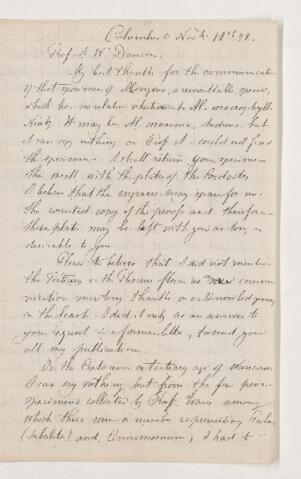 Columbus O Nov 18th 78.
Prof. J. W. Dawson.
My best thanks for the communication
of that specimen of , a remarkable piece,
which has no relation whatever to Al. macrophylla
It may be Al. maxima, Andrews, but
I can say nothing on Prof A. could not find
the specimen. I shall return you specimen
the next with the plates of the Cordaites
I believe that the engraver may make for me
the corrected copy of the proofs and therefore
these plates may be left with you as long as
desirable to you.
Please to believe that I did not mention
the Tertiary or the Pliocene flora as commu-
nication meriting thanks or acknowledgment
in the least. I did it only as an answer to
your request in a former letter, to send you
all my publications.
On the Cretaceous or tertiary age of Vancouver
I can say nothing but from the few poor
specimens collected by Prof. Evans among
which there were a number representing Sabal
(Sabalites) and Cinnamomum, I had to